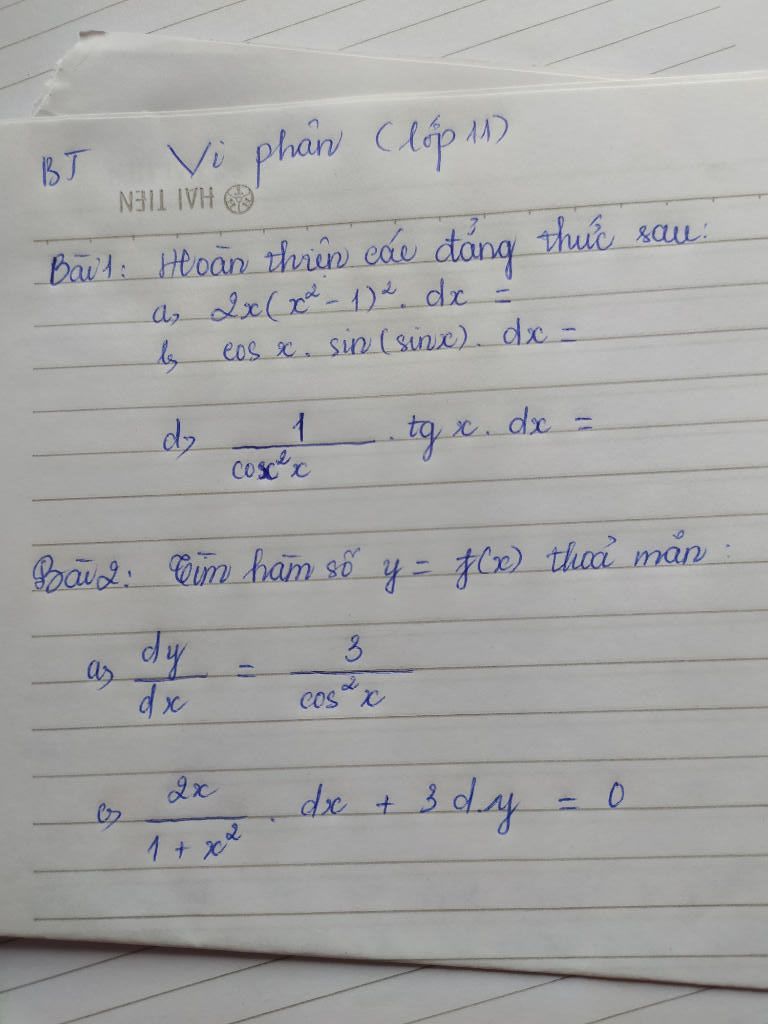 BT Vi phân (lớp 11)
HAI TIEN
Bài 1: Hoàn thiện các đẳng thức sau:
a, 2x(x² - 1)². dx =
b, cos x. sin(sinx). dx =
d, 1/cosx²x . tg x. dx =
Bài 2: Tìm hàm số y = f(x) thoả mãn:
a, dy/dx = 3/cos²x
c, 2x/1 + x² . dx + 3 d.y = 0